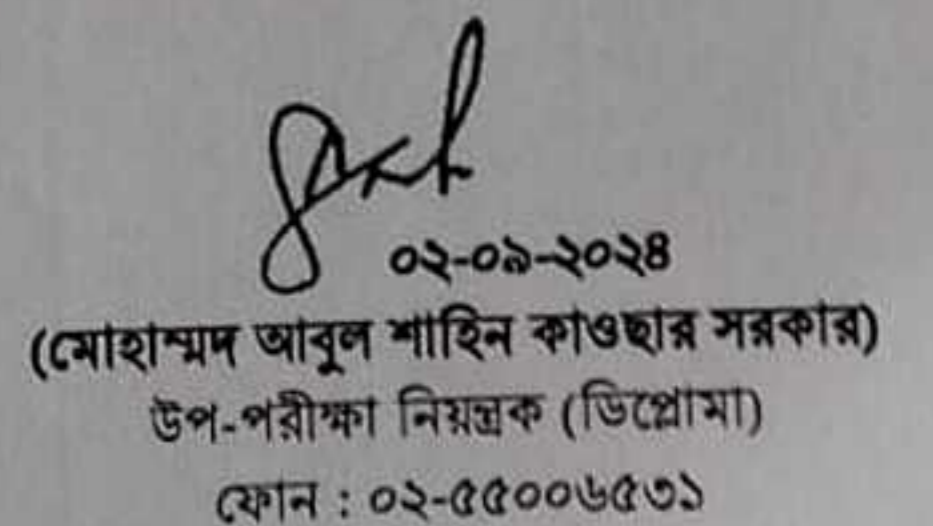 ০২-০৯-২০২৪
(মোহাম্মদ আবুল শাহিন কাওছার সরকার)
উপ-পরীক্ষা নিয়ন্ত্রক (ডিপ্লোমা)
ফোন : ০২-৫৫০০৬৫৩১